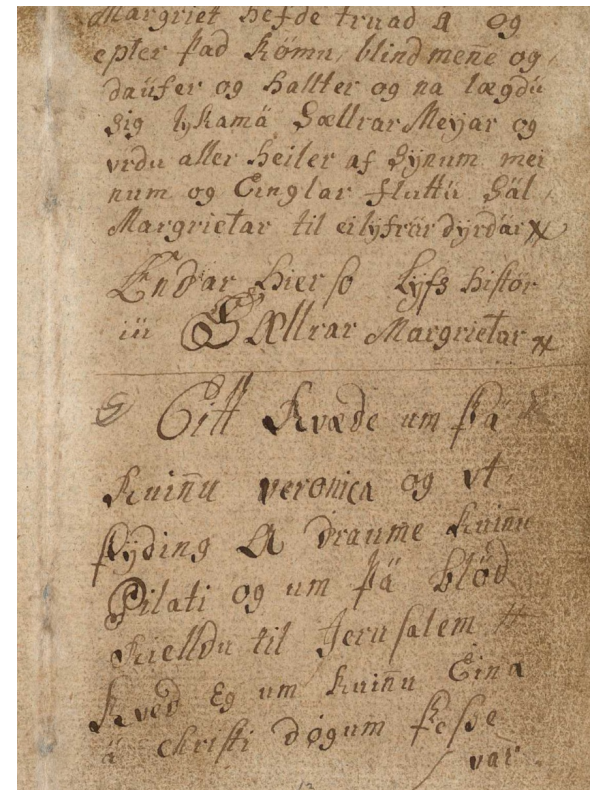 Margriet hefde truad a og
epter þad kömu blind meñe og
daüfer og hallter og na lægdu
sig lykamä Sællrar Meÿar og
vrdu aller heiler af Sÿnum mei
num og Einglar fluttu Säl
Margrietar til eilÿfrar dÿrdar
Endar hier so Lyfs histor
iü Sællrar Margrietar
Eitt Kvæde um þä
kuiñu veronica og vt
þÿding A draume kuiñu
Pilati og um þä blöd
kielldu til Jerusalem
Kved Eg um kuiñu Eina
ä christi døgum þesse
var